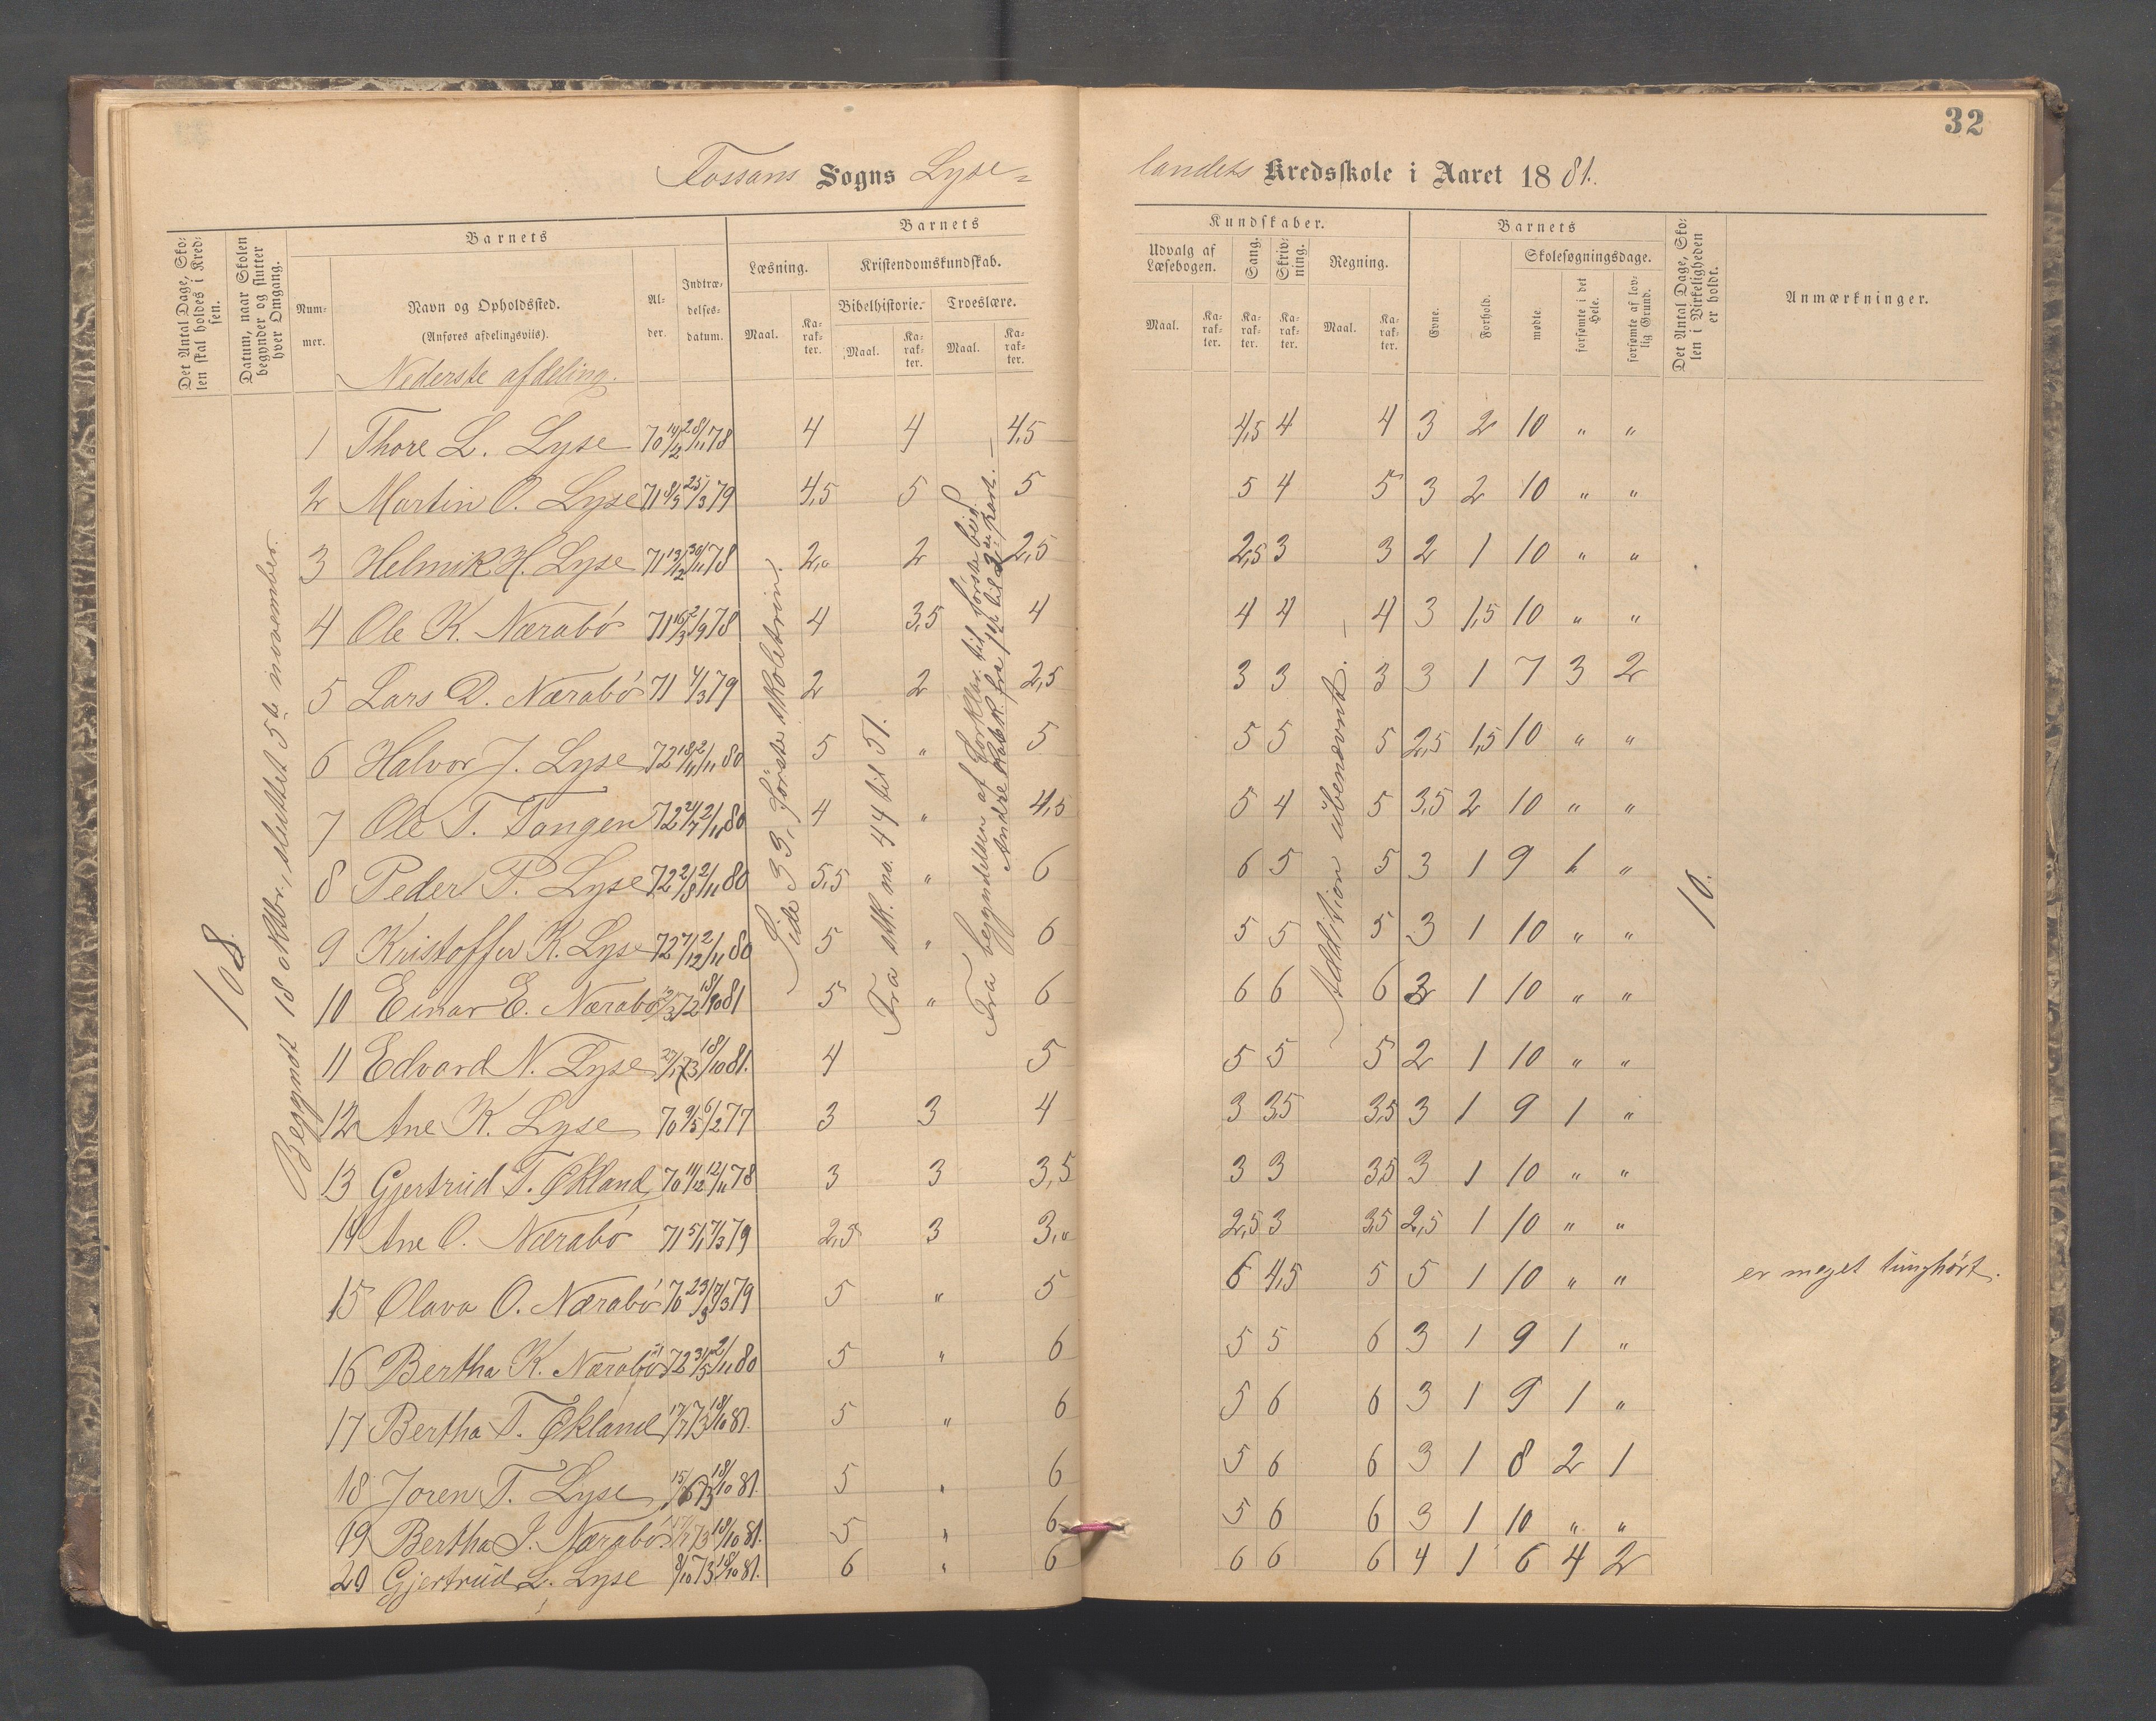 32
Fossans Sogns Lyse=
landets Kredsskole i Aaret 1881.
Det Antal Dage, Skolen skal holdes i Kredsen.
Datum, naar Skolen begynder og slutter hver Omgang.
Barnets
Nummer.
Navn og Opholdssted.
(Anføres afdelingsviis).
Alder.
Indtrædelsesdatum.
Barnets
Læsning.
Maal.
Karakter.
Kristendomskundskab.
Bibelhistorie.
Maal.
Karakter.
Troeslære.
Maal.
Karakter.
Kundskaber.
Udvalg af Læsebogen.
Maal.
Karakter.
Sang.
Karakter.
Skrivning.
Karakter.
Regning.
Maal.
Karakter.
Barnets
Evne.
Forhold.
Skolesøgningsdage.
mødte.
forsømte i det Hele.
forsømte af lovlig Grund.
Det Antal Dage, Skolen i Virkeligheden er holdt.
Anmærkninger.
Nederste afdeling.
108.
Begyndt 18 oktbr., sluttet 5te november.
Side 33, første skoletrin.
Fra stk. no. 44 til 51.
Fra begyndelsen af Forklar. til første bud.
Andre
fra 1ste til 2den part.
Addition ubenevnt.
10.
1 Thore L. Lyse 70 14/12 28/11 78 4 4 4,5 4,5 4 4 3 2 10 " "
2 Martin O. Lyse 71 8/3 25/3 79 4,5 5 5 5 4 5 3 2 10 " "
3 Helmik H. Lyse 71 13/12 30/11 78 2,0 2 2,5 2,5 3 3 2 1 10 " "
4 Ole K. Nærabø 71 16/3 2/9 78 4 3,5 4 4 4 4 3 1,5 10 " "
5 Lars D. Nærabø 71 4/3 79 2 2 2,5 3 3 3 3 1 7 3 2
6 Halvor J. Lyse 72 18/11 2/11 80 5 " 5 5 5 5 2,5 1,5 10 " "
7 Ole T. Tangen 72 24/7 2/11 80 4 " 4,5 5 4 5 3,5 2 10 " "
8 Peder P. Lyse 72 2/8 2/11 80 5,5 " 6 6 5 5 3 1 9 1 "
9 Kristoffer K. Lyse 72 7/12 2/11 80 5 " 6 5 5 5 3 1 10 " "
10 Einar E. Nærabø 72 18/10 81 5 " 6 6 6 6 3 1 10 " "
11 Edvard N. Lyse 27/1 73 18/10 81. 4 5 5 5 5 2 1 10 " "
12 Ane K. Lyse 70 9/5 6/2 77 3 3 4 3 3,5 3,5 3 1 9 1 "
13 Gjertrud T. Økland 70 14/12 12/11 78 3 3 3,5 3 3 3,5 3 1 10 " "
14 Ane O. Nærabø 71 5/1 7/3 79 2,5 3 3,0 2,5 3 3,5 2,5 1 10 " "
15 Olava O. Nærabø 70 23/3 4/3 79 5 " 5 6 4,5 5 5 1 10 " " er meget tunghørt.
16 Bertha K. Nærabø 72 31/3 2/11 80 5 " 6 5 5 6 3 1 9 1 "
17 Bertha T. Økland 17/7 73 18/10 81. 5 " 6 5 6 6 3 1 9 1 "
18 Joren T. Lyse 15/6 73 18/10 81. 5 " 6 5 6 6 3 1 8 2 1
19 Bertha J. Nærabø 17/7 73 18/10 81. 5 " 6 5 6 6 3 1 10 " "
20 Gjertrud L. Lyse 8/10 73 18/10 81. 6 " 6 6 6 6 4 1 6 4 2